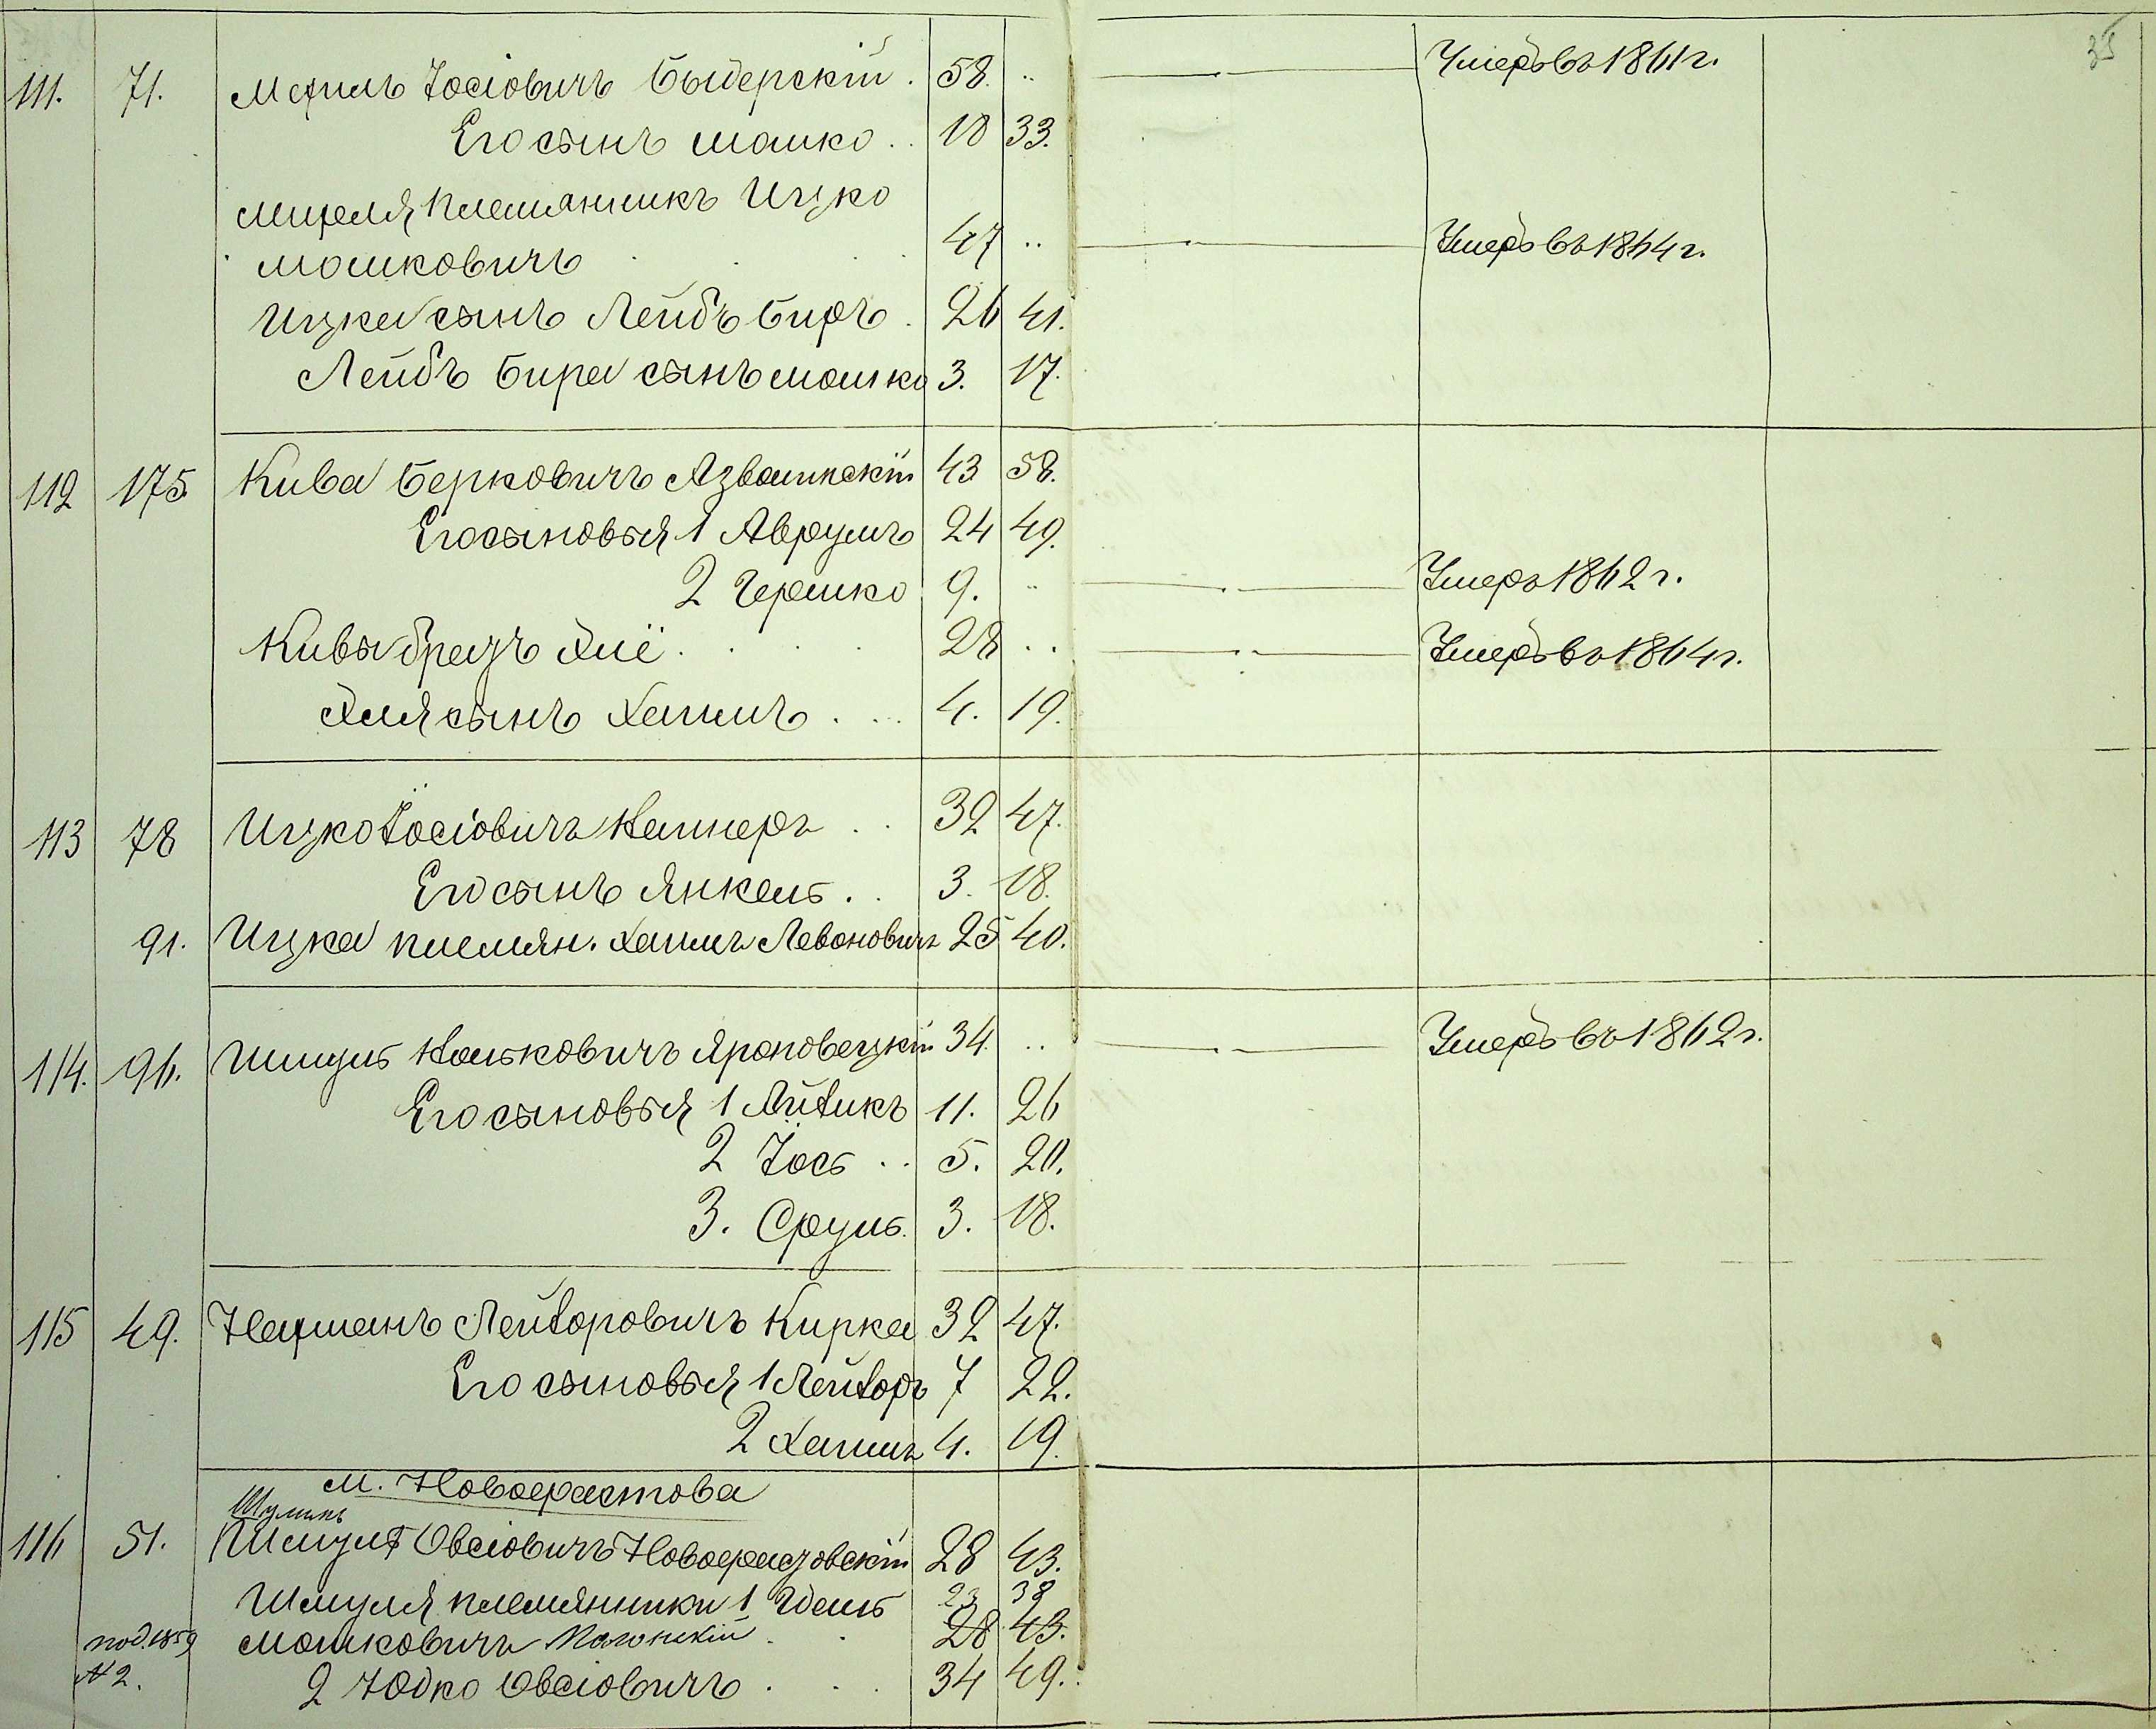 35
111. 71. Мехиль Іосіовичъ Быдерскій . 58. .. Умеръ въ 1861 г.
Его сынъ Мошко . . 18 33.
Михеля племянникъ Ицко
Мошковичъ 47 .. Умеръ въ 1864 г.
Ицка сынъ Лейбъ Биръ . 26 41.
Лейбъ Бира сынъ Мошко 3. 17.
112 175 Кива Берковичъ 43 58.
Его сыновья 1 Аврумъ 24 49.
2 Гершко 9. .. Умеръ 1862 г.
Кивы братъ Хиё . . . . 28 .. Умеръ въ 1864 г.
Хиля сынъ Хаимъ . . . 4. 19.
113 78 Ицко Іосіовичъ . . 32 47.
Его сынъ Янкель . . 3. 18.
91. Ицка племян. Хаимъ Левоновичъ 25 40.
114. 96. Шмуль Яроповецкій 34. .. Умеръ въ 1862 г.
Его сыновья 1 Айзикъ 11. 26
2 Іось . . 5. 20.
3. Сруль. 3. 18.
115 49. Нахманъ Лейзоровичъ Кирка 32 47.
Его сыновья 1 Лейзоръ 7 22.
2 Хаимъ 4. 19.
м. Новофастова
Шулимъ
116 51. Шмуль Овсіовичъ Новофастовскій 28 43.
Шмуля племянники 1 Ідель 23 38
под. 1859 Мошковичъ . . 28 43.
№ 2. 2 Юдко Овсіовичъ . . . 34 49.